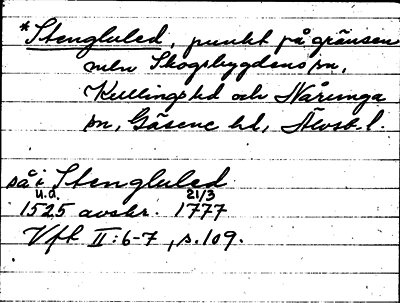 *Stengluled, punkt på gränsen
mln Skogsbygdens sn,
Kullings hd och Nårunga
sn, Gäsene hd, Älvsb. l.
så i Stengluled
u.å. 21/3
1525 avskr. 1777
Vfl II:6-7, s. 109.